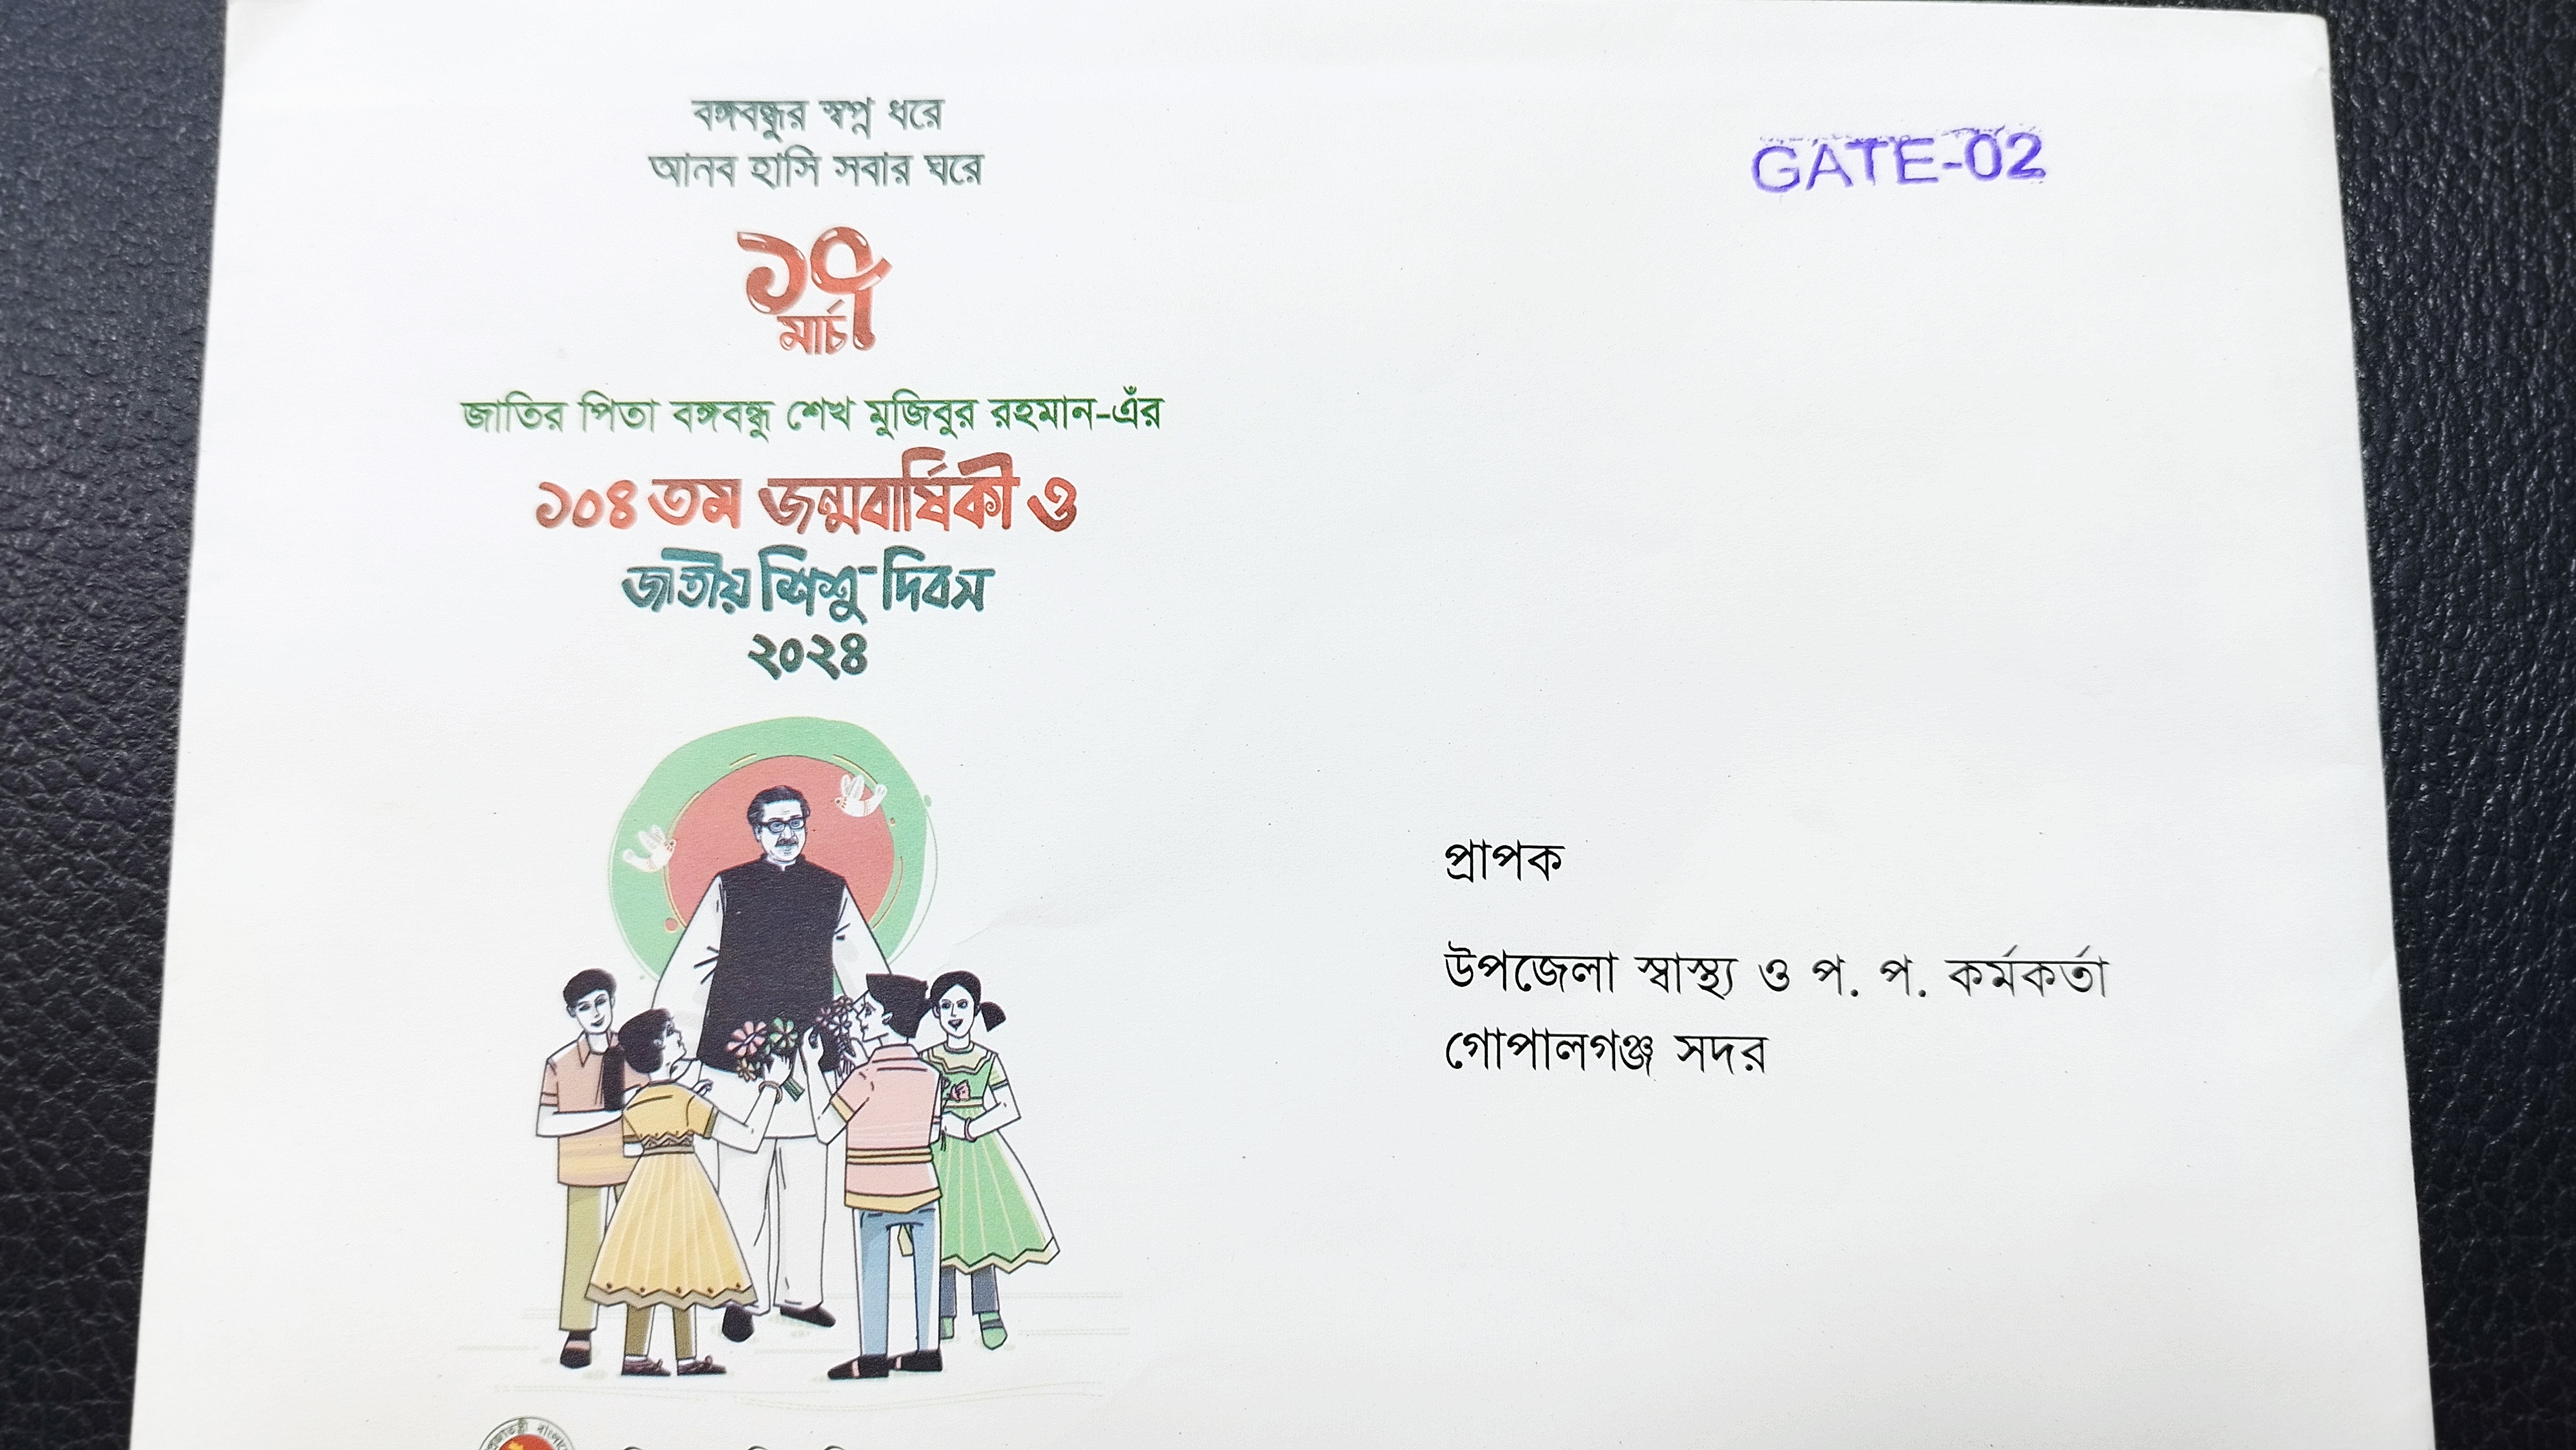 বঙ্গবন্ধুর স্বপ্ন ধরে
আনব হাসি সবার ঘরে
১৭
মার্চ
জাতির পিতা বঙ্গবন্ধু শেখ মুজিবুর রহমান-এঁর
১০৪ তম জন্মবার্ষিকী ও
জাতীয় শিশু দিবস
২০২৪
GATE-02
প্রাপক
উপজেলা স্বাস্থ্য ও প. প. কর্মকর্তা
গোপালগঞ্জ সদর